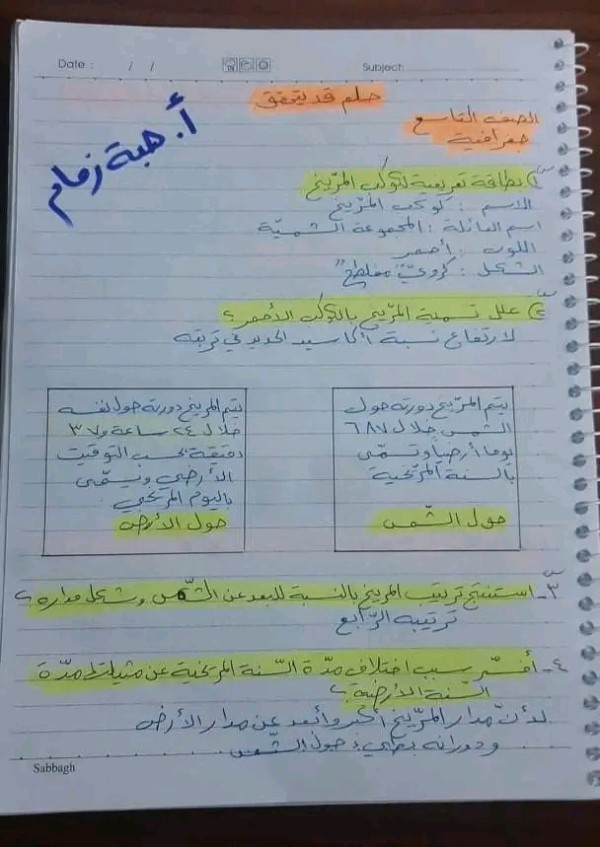 Date : / /
Subject:
حلم قد يتحقق
الصف التاسع
جغرافية
أ. هبة زمام
١) بطاقة تعريفية لكوكب المرّيخ
الاسم : كوكب المرّيخ
اسم العائلة : المجموعة الشمسيّة
اللون : أحمر
الشكل : كرويّ "مفلطح"
٢) علل تسمية المرّيخ بالكوكب الأحمر ؟
لارتفاع نسبة أكاسيد الحديد في تربته
يتم المرّيخ دورته حول
الشمس خلال ٦٨٧
يوماً أرضياً وتسمّى
بالسنة المرّيخية
حول الشّمس
يتم المريخ دورته حول نفسه
خلال ٢٤ ساعة و٣٧
دقيقة بحسب التوقيت
الأرضي ويسمّى
باليوم المريخي
حول الأرض
٣- استنتج ترتيب المريخ بالنسبة للبعد عن الشّمس وشكل مداره ؟
ترتيبه الرّابع
٤- أفسّر سبب اختلاف مدّة السّنة المريخية عن مثيلتها مدّة
السّنة الأرضية ؟
لأنّ مدار المرّيخ أكبر وأبعد عن مدار الأرض
ودورانه بطيء حول الشّمس
Sabbagh